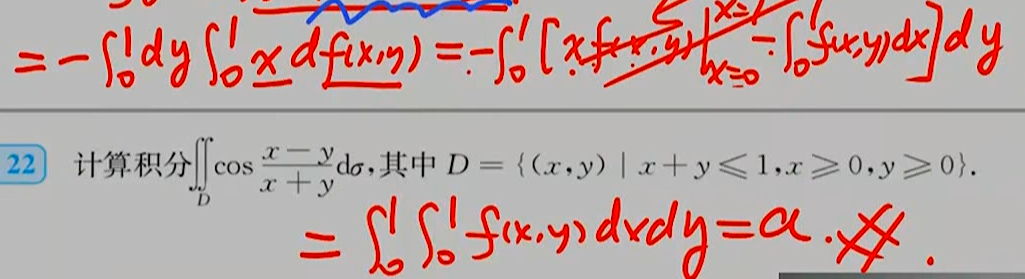 = -∫₀¹ dy ∫₀¹ x d f(x,y) = -∫₀¹ [x f(x,y) |ₓ₌₀ˣ⁼¹ - ∫₀¹ f(x,y) dx] dy
22 计算积分∬_D cos (x-y)/(x+y) dσ,其中 D = {(x,y) | x+y≤1,x≥0,y≥0}.
= ∫₀¹ ∫₀¹ f(x,y) dx dy = a.